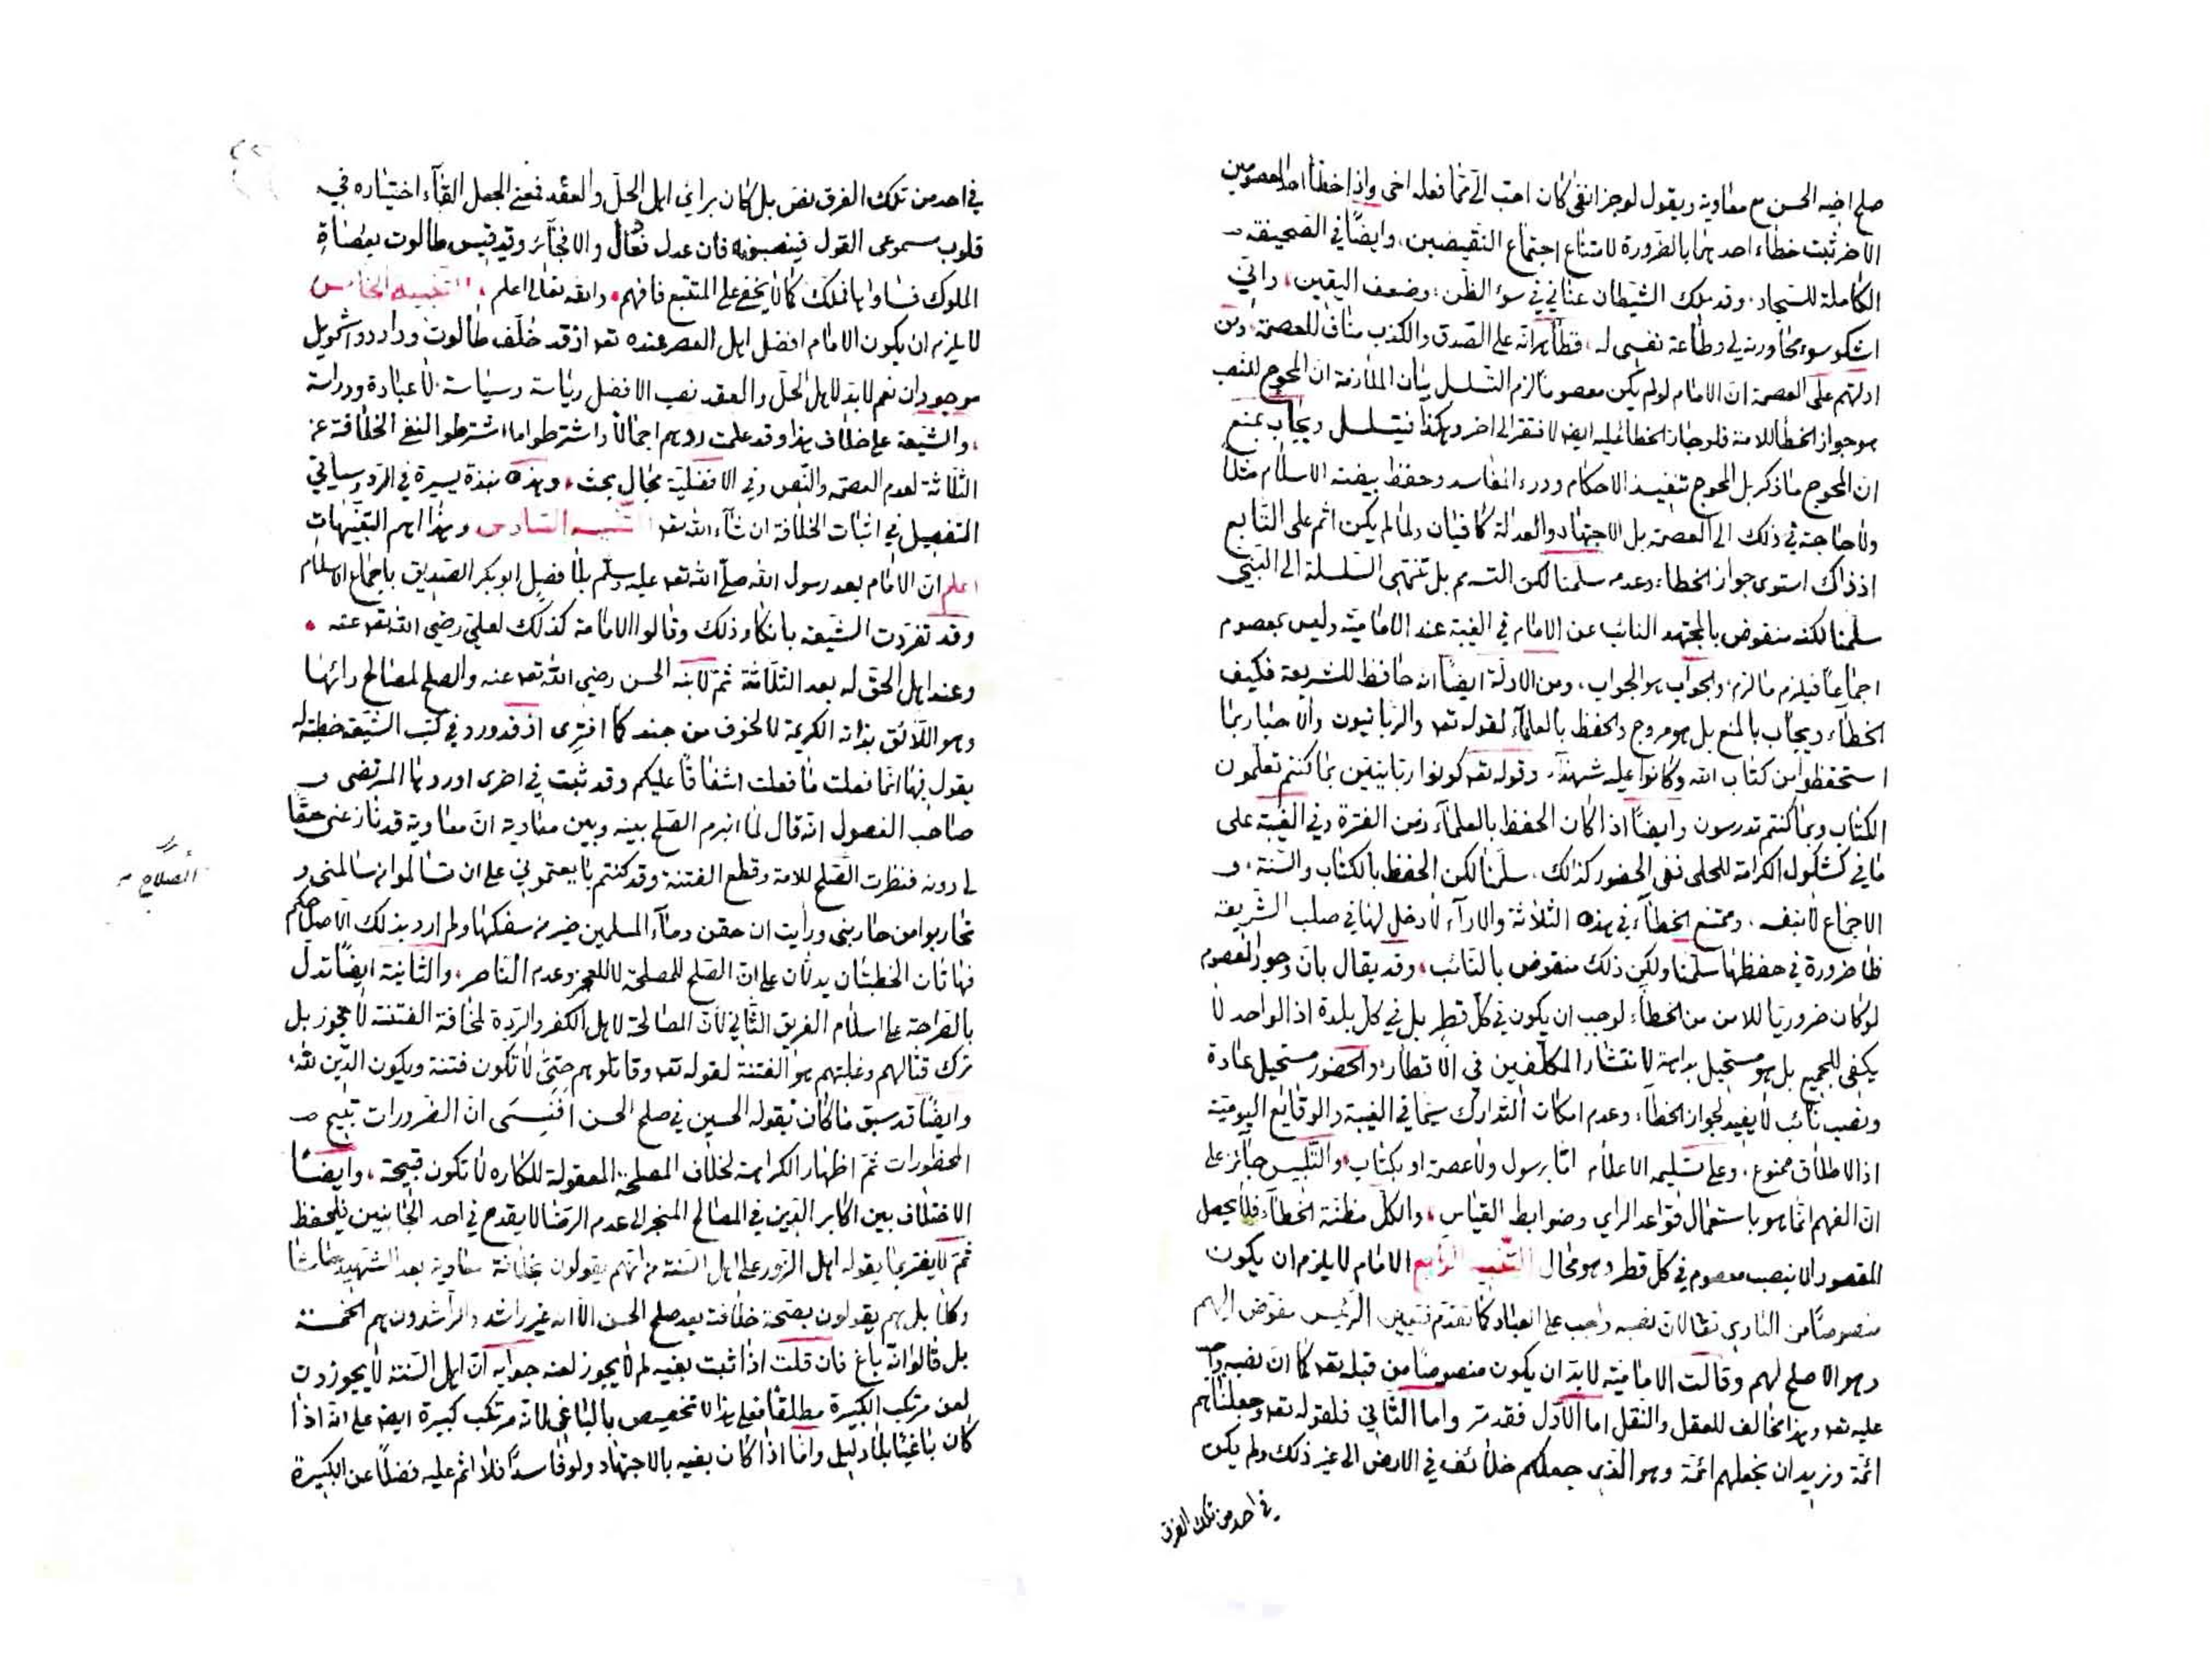 صلح اخيه الحسن مع معاوية ويقول لو جز انفى كان احب الىّ ممّا فعله اخى واذا خطأ احد المعصومين
الآخر ثبت خطاء احدهما بالضرورة لامتناع اجتماع النقيضين، وايضًا في الصحيفة
الكاملة للسجاد، وقد ملك الشيطان عناني في سوء الظن، وضعف اليقين، وانّى
اشكو سوء مجاورته لى وطاعة نفسى له، فظاهر انّه على الصدق والكذب مناف للعصمة ومن
ادلتهم على العصمة ان الامام لو لم يكن معصوما لزم التسلسل بيان الملازمة ان المحوج للنصب
هو جواز الخطا للامة فلو جاز الخطا عليه ايضا لافتقر الى اخر وهكذا فيتسلسل ويجاب بمنع
ان المحوج ما ذكر بل المحوج تنفيذ الاحكام ودرء المفاسد وحفظ بيضة الاسلام مثلا
ولا حاجة في ذلك الى العصمة بل الاجتهاد والعدالة كافيان ولما لم يكن اثم على التابع
اذ ذاك استوى جواز الخطاء وعدمه سلمنا لكن التسم بل تنتهى السلسلة الى النبي
سلمنا لكنه منقوض بالمجتهد النائب عن الامام في الغيبة عند الامامية وليس بمعصوم
اجماعا فيلزم ما لزم والجواب هو الجواب، ومن الادلة ايضا انه حافظ للشريعة فكيف
الخطاء ويجاب بالمنع بل هو مروج والحفظ بالعلماء لقوله تعه والربانيون والاحبار بما
استحفظوا من كتاب الله وكانوا عليه شهداء، وقوله تعه كونوا ربانيين بما كنتم تعلمون
الكتاب وبما كنتم تدرسون وايضًا اذا كان الحفظ بالعلماء زمن الفترة وفي الغيبة على
ما في كشكول الكرامة للحلى ففى الحضور كذلك، سلمنا لكن الحفظ بالكتاب والسنة، و
الاجماع لا بنفسه، وممتنع الخطاء في هذه الثلاثة والآراء لا دخل لها في صلب الشريعة
فلا ضرورة في حفظها سلمنا ولكن ذلك منقوض بالنائب، وقد يقال بان وجود المعصوم
لو كان ضروريا للامن من الخطاء لوجب ان يكون في كل قطر بل في كل بلدة اذ الواحد لا
يكفى للجميع بل هو مستحيل بداهة لانتشار المكلفين في الاقطار والحضور مستحيل عادة
ونصب نائب لا يفيد لجواز الخطاء، وعدم امكان التدارك سيما في الغيبة والوقايع اليومية
اذ الاطلاق ممنوع، وعلى تسليمه الاعلام امّا برسول ولا عصمة او بكتاب، والتلبيس جائز على
ان الفهم انما هو باستعمال قواعد الراى وضوابط القياس، والكل مظنة الخطاء فلا يحصل
المقصود الا بنصب معصوم في كل قطر وهو محال التنبيه الرابع الامام لا يلزم ان يكون
منصوصًا من البارى تعالى لان نصبه واجب على العباد كما تقدم فتعيين الرئيس مفوض اليهم
وهو الاصلح لهم وقالت الامامية لابد ان يكون منصوصا من قبله تعه كما ان نصبه واجب
عليه تعه وهذا مخالف للعقل والنقل اما الاول فقد مر واما الثاني فلقوله تعه وجعلناهم
ائمة ونريد ان نجعلهم ائمة وهو الذى جعلكم خلائف في الارض الى غير ذلك ولم يكن
في احد من تلك الفرق
في احد من تلك الفرق نصّ بل كان براى اهل الحل والعقد فمعنى الجعل القاء اختياره في
قلوب مسموعى القول فينصبونه فان عدل فعادل والا فجائر وقد قيس طالوت بعصاة
الملوك فساواها فملك كما لا يخفى على المتتبع فافهم، والله تعالى اعلم، التنبيه الخامس
لا يلزم ان يكون الامام افضل اهل العصر عنده تعه اذ قد خلّف طالوت وداود واشمويل
موجودان نعم لابد لاهل الحل والعقد نصب الافضل رياسة وسياسة لا عبادة ودراسة
، والشيعة على خلاف هذا وقد علمت ردهم اجمالا واشترطوا ما اشترطوا لنفى الخلافة عن
الثلاثة لعدم العصمة والنص وفى الافضلية مجال بحث، وهذه نبذة يسيرة في الرد وسياتي
التفصيل في اثبات الخلافة ان شاء الله تعه التنبيه السادس وهذا اهم التنبيهات
اعلم ان الامام بعد رسول الله صلى الله تعه عليه وسلم بلا فصل ابو بكر الصديق باجماع الاسلام
وقد تفردت الشيعة بانكار ذلك وقالوا الامامة كذلك لعلي رضي الله تعه عنه،
وعند اهل الحق له بعد الثلاثة ثم لابنه الحسن رضي الله تعه عنه والصلح لمصالح رائها
وهو اللائق بذاته الكريمة لا لخوف من جنده كما افترى اذ قد ورد في كتب الشيعة خطبة له
يقول فيها انما فعلت ما فعلت اشفاقا عليكم وقد ثبت في اخرى اوردها المرتضى و
صاحب الفصول انه قال لما انبرم الصلح بينه وبين معاوية ان معاوية قد نازعنى حقا
لى دونه فنظرت الصلح للامة وقطع الفتنة وقد كنتم بايعتمونى على ان تسالموا من سالمنى و
تحاربوا من حاربنى ورأيت ان حقن دماء المسلمين خير من سفكها ولم ارد بذلك الا صلاحكم
فهاتان الخطبتان يدلان على ان الصلح للمصلحة لا للعجز وعدم الناصر، والثانية ايضًا تدل
بالصراحة على اسلام الفريق الثاني لان المصالحة لاهل الكفر والردة لمخافة الفتنة لا تجوز بل
ترك قتالهم وغلبتهم هو الفتنة لقوله تعه وقاتلوهم حتى لا تكون فتنة ويكون الدّين لله،
وايضًا قد سبق ما كان يقوله الحسين في صلح الحسن افنسى ان الضرورات تبيح
المحظورات ثم اظهار الكراهة لخلاف المصلحة المعقولة للكاره لا تكون قبيحة، وايضًا
الاختلاف بين اكابر الدين في المصالح المنجر الى عدم الرضا لا يقدح في احد الجانبين فليحفظ
ثم لا يغتر بما يقوله اهل الزور على اهل السنة من انهم يقولون بخلافة معاوية بعد الشهيد حاشا
وكلا بل هم يقولون بصحة خلافته بعد صلح الحسن الا انه غير راشد والراشدون هم الخمسة
بل قالوا انه باغ فان قلت اذا ثبت بغيه لم لا يجوز لعنه جوابه ان اهل السنة لا يجوزون
لعن مرتكب الكبيرة مطلقا فعلى هذا لا تخصيص بالباغى لانه مرتكب كبيرة ايضا على انه اذا
كان باغيًا بلا دليل واما اذا كان بغيه بالاجتهاد ولو فاسدًا فلا اثم عليه فضلًا عن الكبيرة
الصلاح